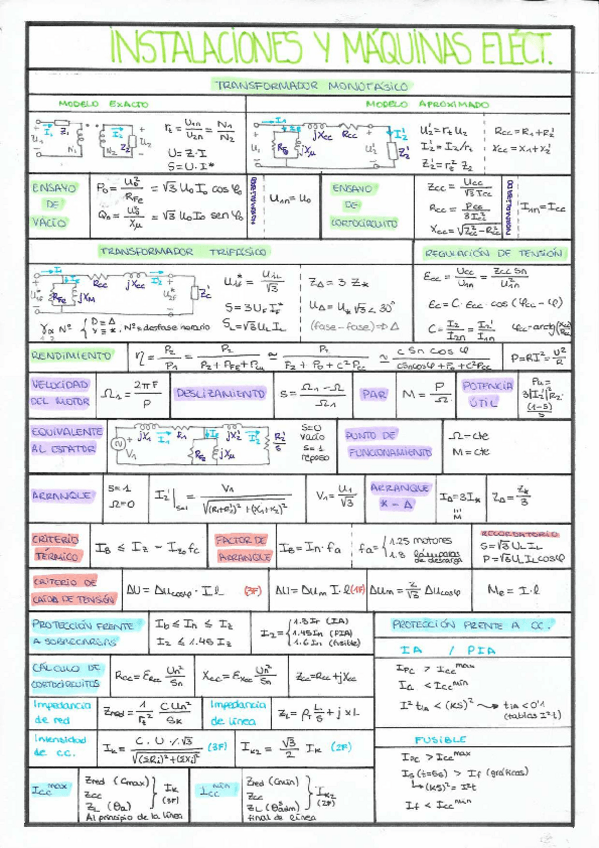 INSTALACIONES Y MÁQUINAS ELÉCT.
TRANSFORMADOR MONOFÁSICO
MODELO EXACTO
MODELO APROXIMADO
rt = U1n/U2n = N1/N2
U = Z·I
S = U·I*
U2' = rt U2
I2' = I2/rt
Z2' = rt² Z2
Rcc = R1 + R2'
Xcc = X1 + X2'
ENSAYO DE VACÍO
P0 = U0²/RFe = √3 U0 I0 cos φ0
Q0 = U0²/Xμ = √3 U0 I0 sen φ0
NORMALIZADO
U1n = U0
ENSAYO DE CORTOCIRCUITO
Zcc = Ucc/√3 Icc
Rcc = Pcc/3Icc²
Xcc = √Zcc² - Rcc²
NORMALIZADO
I1n = Icc
TRANSFORMADOR TRIFÁSICO
S = 3 UF IF*
SL = √3 UL IL
ZΔ = 3 Z*
UΔ = U* √3 < 30°
(fase-fase) ⇒ Δ
N° = desfase horario
REGULACIÓN DE TENSIÓN
Ecc = Ucc/U1n = Zcc Sn/U1n²
Ec = C · Ecc · cos (φcc - φ)
C = I2/I2n = I2'/I1n
φcc = arctg (Xcc/Rcc)
RENDIMIENTO
η = P2/P1 = P2/(P2 + PFe + Pcu) ≃ P2/(P2 + P0 + C²Pcc) ≃ C Sn cos φ/(C Sn cos φ + P0 + C²Pcc)
P = RI² = U²/R
VELOCIDAD DEL MOTOR
Ω1 = 2πF/P
DESLIZAMIENTO
S = (Ω1 - Ω)/Ω1
PAR
M = P/Ω
POTENCIA ÚTIL
Pu = 3|I2'|² R2' (1-S)/S
EQUIVALENTE AL ESTATOR
S=0 vacío
S=1 reposo
PUNTO DE FUNCIONAMIENTO
Ω = cte
M = cte
ARRANQUE
S=1
Ω=0
I2'|S=1 = V1/√(R1+R2')² + (X1+X2')²
V1 = U1/√3
ARRANQUE
* - Δ
IΔ = 3I*
M
ZΔ = Z*/3
CRITERIO TÉRMICO
IB ≤ IZ = IZ0 fc
FACTOR DE ARRANQUE
IB = In · fa
fa = { 1.25 motores
1.8 lámparas de descarga
RECORDATORIO
S = √3 UL IL
P = √3 UL IL cosφ
CRITERIO DE CAÍDA DE TENSIÓN
ΔU = ΔUcosφ · I l (3F)
ΔU = ΔUm I·l (1F)
ΔUm = 2/√3 ΔUcosφ
Me = I·l
PROTECCIÓN FRENTE A SOBRECARGAS
Ib ≤ In ≤ Iz
I2 ≤ 1.45 Iz
I2 = { 1.3 Ir (IA)
1.45 In (PIA)
1.6 In (fusible)
PROTECCIÓN FRENTE A CC.
IA / PIA
IPC > Icc max
Ia < Icc min
I² tIA < (KS)² → tIA < 0'1 (tablas I²t)
CÁLCULO DE CORTOCIRCUITOS
Rcc = ERcc Un²/Sn
Xcc = EXcc Un²/Sn
Zcc = Rcc + jXcc
Impedancia de red
Zred = 1/rt² C Un²/Sk
Impedancia de línea
ZL = ρ L/S + j x L
Intensidad de c.c.
(3F)
IK2 = √3/2 IK (2F)
FUSIBLE
IPC > Icc max
Is (t=5s) > If (gráficas)
(KS)² = I²t
If < Icc min
Icc max
Zred (Cmax)
Zcc
ZL (θa)
IK (3F)
Al principio de la línea
Icc min
Zred (Cmin)
Zcc
ZL (θadm)
IK (2F)
final de línea